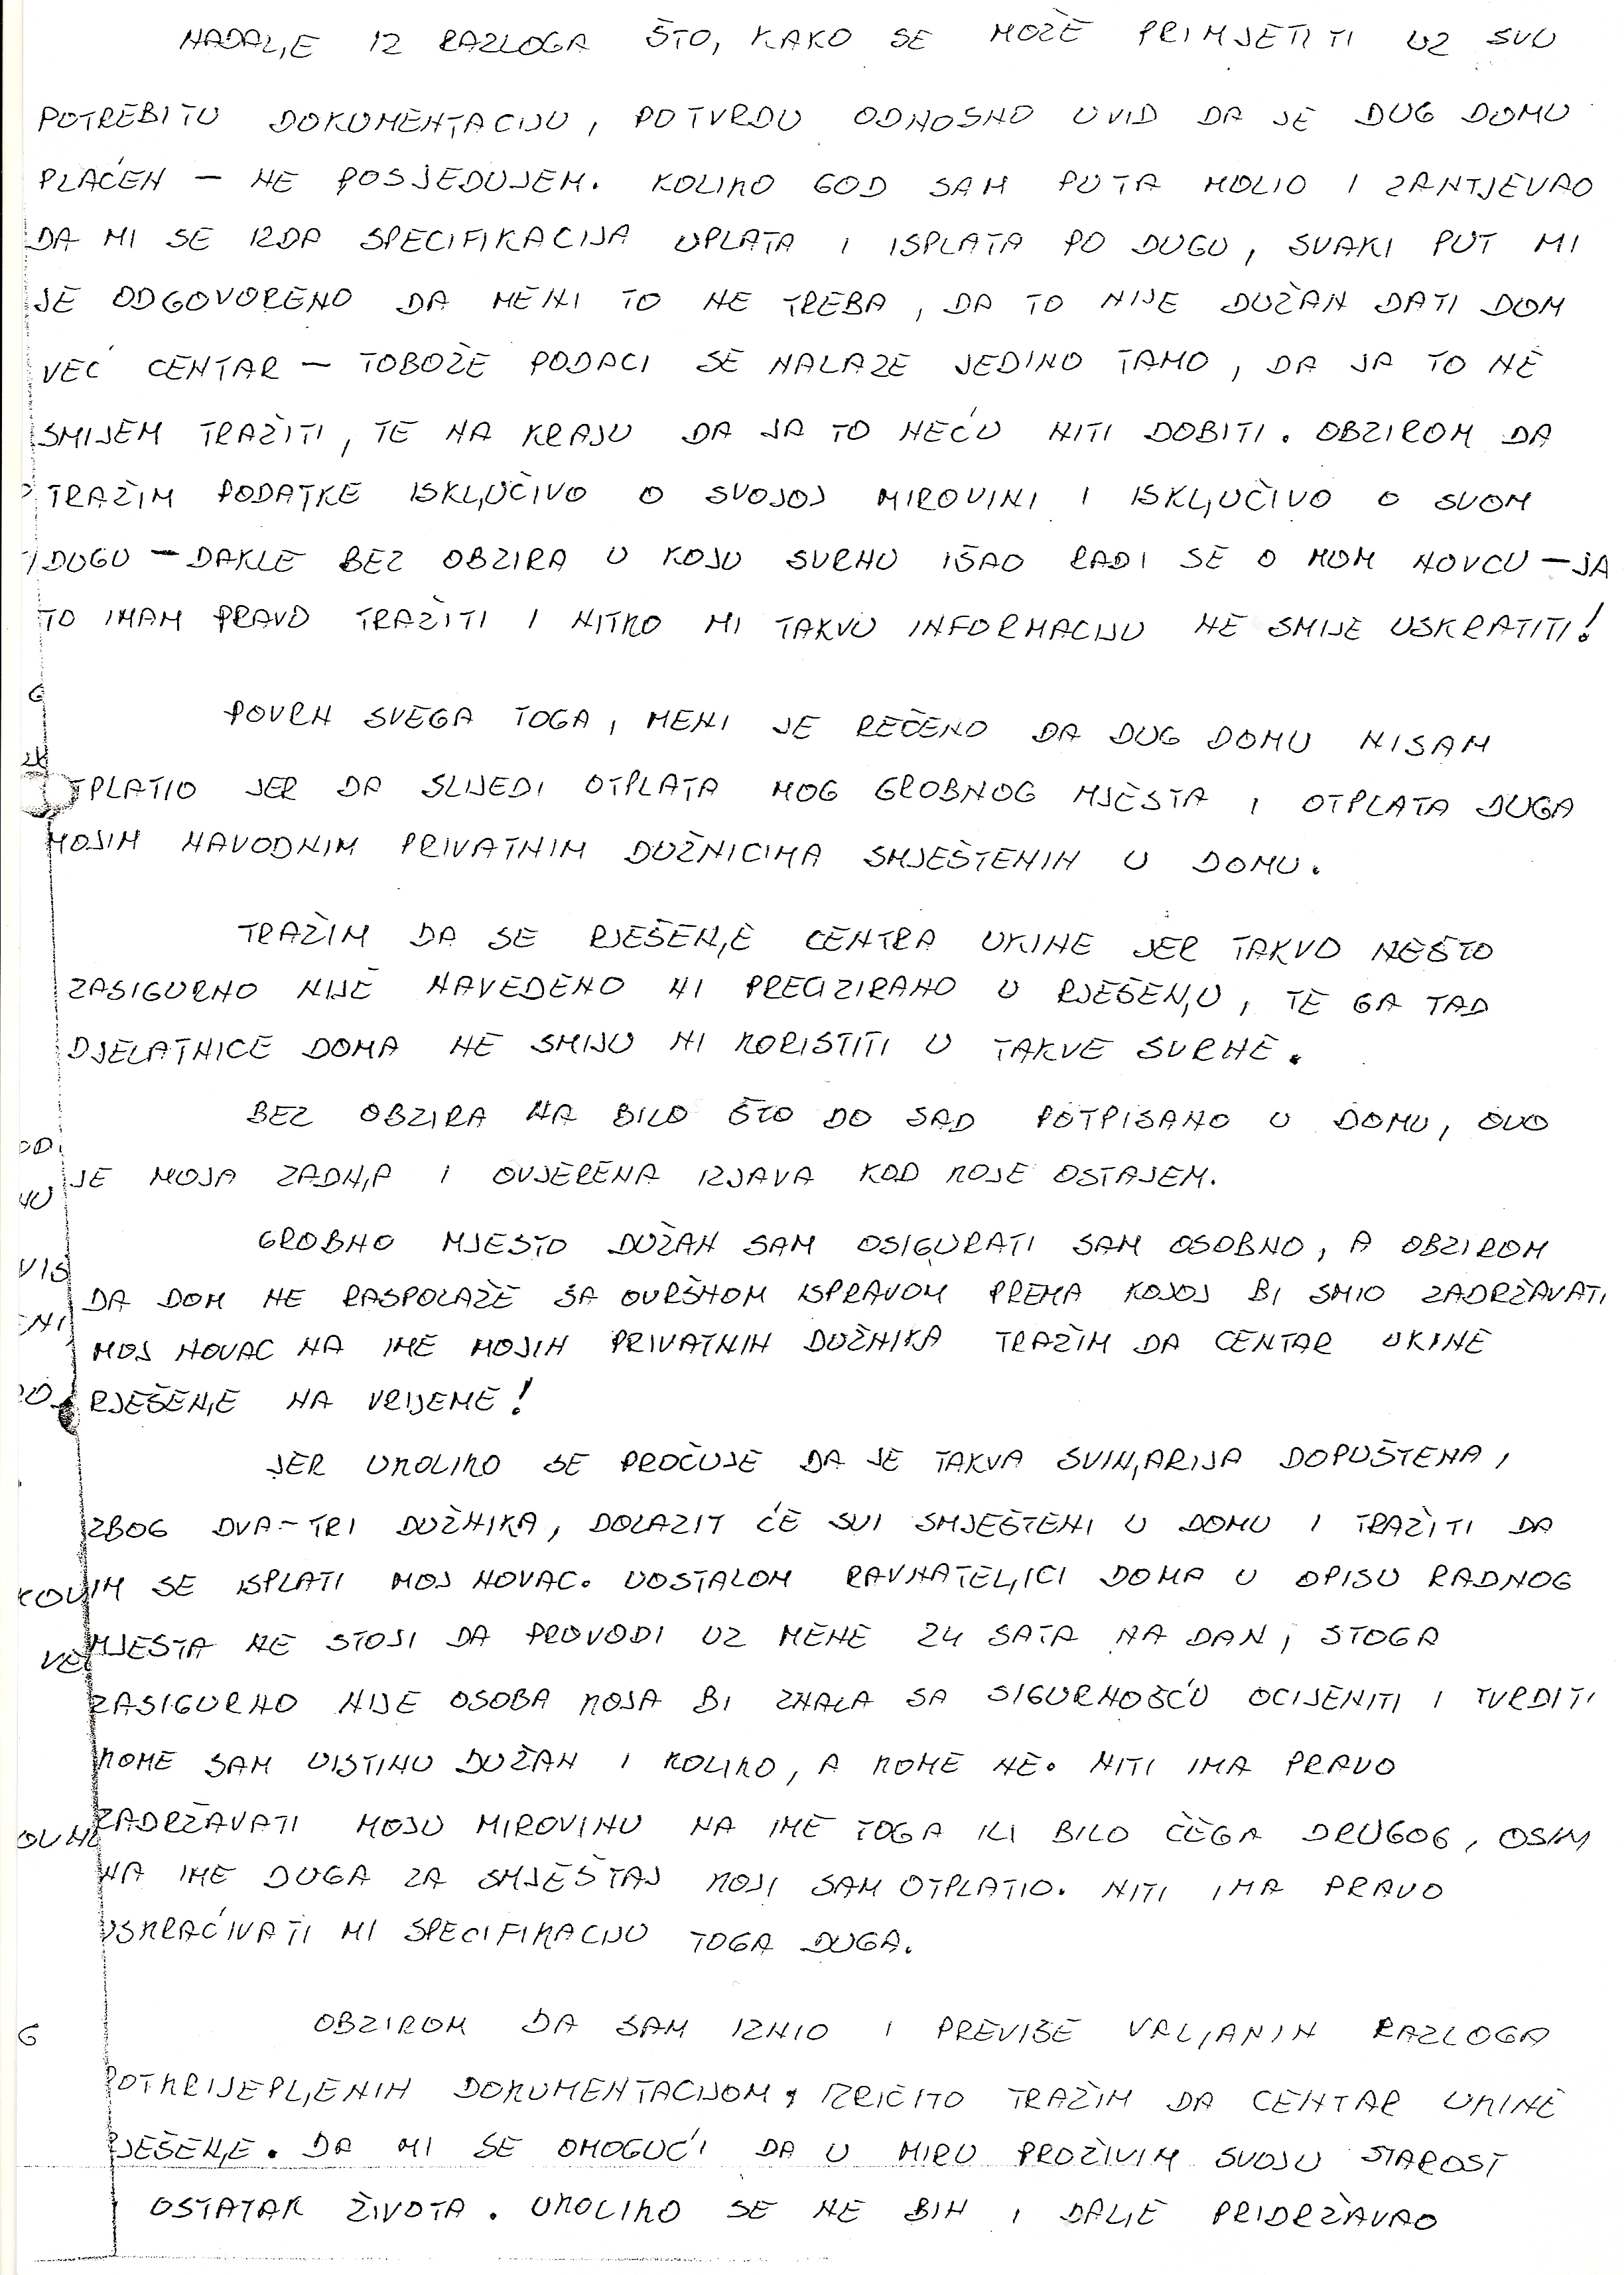 NADALJE IZ RAZLOGA ŠTO, KAKO SE MOŽE PRIMJETITI UZ SVU
POTREBITU DOKUMENTACIJU, POTVRDU ODNOSNO UVID DA JE DUG DOMU
PLAĆEN — NE POSJEDUJEM. KOLIKO GOD SAM PUTA MOLIO I ZAHTJEVAO
DA MI SE IZDA SPECIFIKACIJA UPLATA I ISPLATA PO DUGU, SVAKI PUT MI
JE ODGOVORENO DA MENI TO NE TREBA, DA TO NIJE DUŽAN DATI DOM
VEĆ CENTAR — TOBOŽE PODACI SE NALAZE JEDINO TAMO, DA JA TO NE
SMIJEM TRAŽITI, TE NA KRAJU DA JA TO NEĆU NITI DOBITI. OBZIROM DA
TRAŽIM PODATKE ISKLJUČIVO O SVOJOJ MIROVINI I ISKLJUČIVO O SVOM
DUGU — DAKLE BEZ OBZIRA U KOJU SVRHU IŠAO RADI SE O MOM NOVCU — JA
TO IMAM PRAVO TRAŽITI I NITKO MI TAKVU INFORMACIJU NE SMIJE USKRATITI!
G
POVRH SVEGA TOGA, MENI JE REČENO DA DUG DOMU NISAM
TPLATIO JER DA SLIJEDI OTPLATA MOG GROBNOG MJESTA I OTPLATA DUGA
MOJIM NAVODNIM PRIVATNIM DUŽNICIMA SMJEŠTENIH U DOMU.
TRAŽIM DA SE RJEŠENJE CENTRA UKINE JER TAKVO NEŠTO
ZASIGURNO NIJE NAVEDENO NI PRECIZIRANO U RJEŠENJU, TE GA TAD
DJELATNICE DOMA NE SMIJU NI KORISTITI U TAKVE SVRHE.
BEZ OBZIRA NA BILO ŠTO DO SAD POTPISANO U DOMU, OVO
JE MOJA ZADNJA I OVJERENA IZJAVA KOD KOJE OSTAJEM.
GROBNO MJESTO DUŽAN SAM OSIGURATI SAM OSOBNO, A OBZIROM
DA DOM NE RASPOLAŽE SA OVRŠNOM ISPRAVOM PREMA KOJOJ BI SMIO ZADRŽAVATI
MOJ NOVAC NA IME MOJIH PRIVATNIH DUŽNIKA TRAŽIM DA CENTAR UKINE
RJEŠENJE NA VRIJEME!
JER UKOLIKO SE PROČUJE DA JE TAKVA SVINJARIJA DOPUŠTENA,
ZBOG DVA-TRI DUŽNIKA, DOLAZIT ĆE SVI SMJEŠTENI U DOMU I TRAŽITI DA
IM SE ISPLATI MOJ NOVAC. UOSTALOM RAVNATELJICI DOMA U OPISU RADNOG
MJESTA NE STOJI DA PROVODI UZ MENE 24 SATA NA DAN, STOGA
ZASIGURNO NIJE OSOBA KOJA BI ZNALA SA SIGURNOŠĆU OCIJENITI I TVRDITI
KOME SAM UISTINU DUŽAN I KOLIKO, A KOME NE. NITI IMA PRAVO
ZADRŽAVATI MOJU MIROVINU NA IME TOGA ILI BILO ČEGA DRUGOG, OSIM
NA IME DUGA ZA SMJEŠTAJ KOJI SAM OTPLATIO. NITI IMA PRAVO
USKRAĆIVATI MI SPECIFIKACIJU TOGA DUGA.
G
OBZIROM DA SAM IZNIO I PREVIŠE VALJANIH RAZLOGA
POTKRIJEPLJENIH DOKUMENTACIJOM, IZRIČITO TRAŽIM DA CENTAR UKINE
RJEŠENJE. DA MI SE OMOGUĆI DA U MIRU PROŽIVIM SVOJU STAROST
OSTATAK ŽIVOTA. UKOLIKO SE NE BIH I DALJE PRIDRŽAVAO